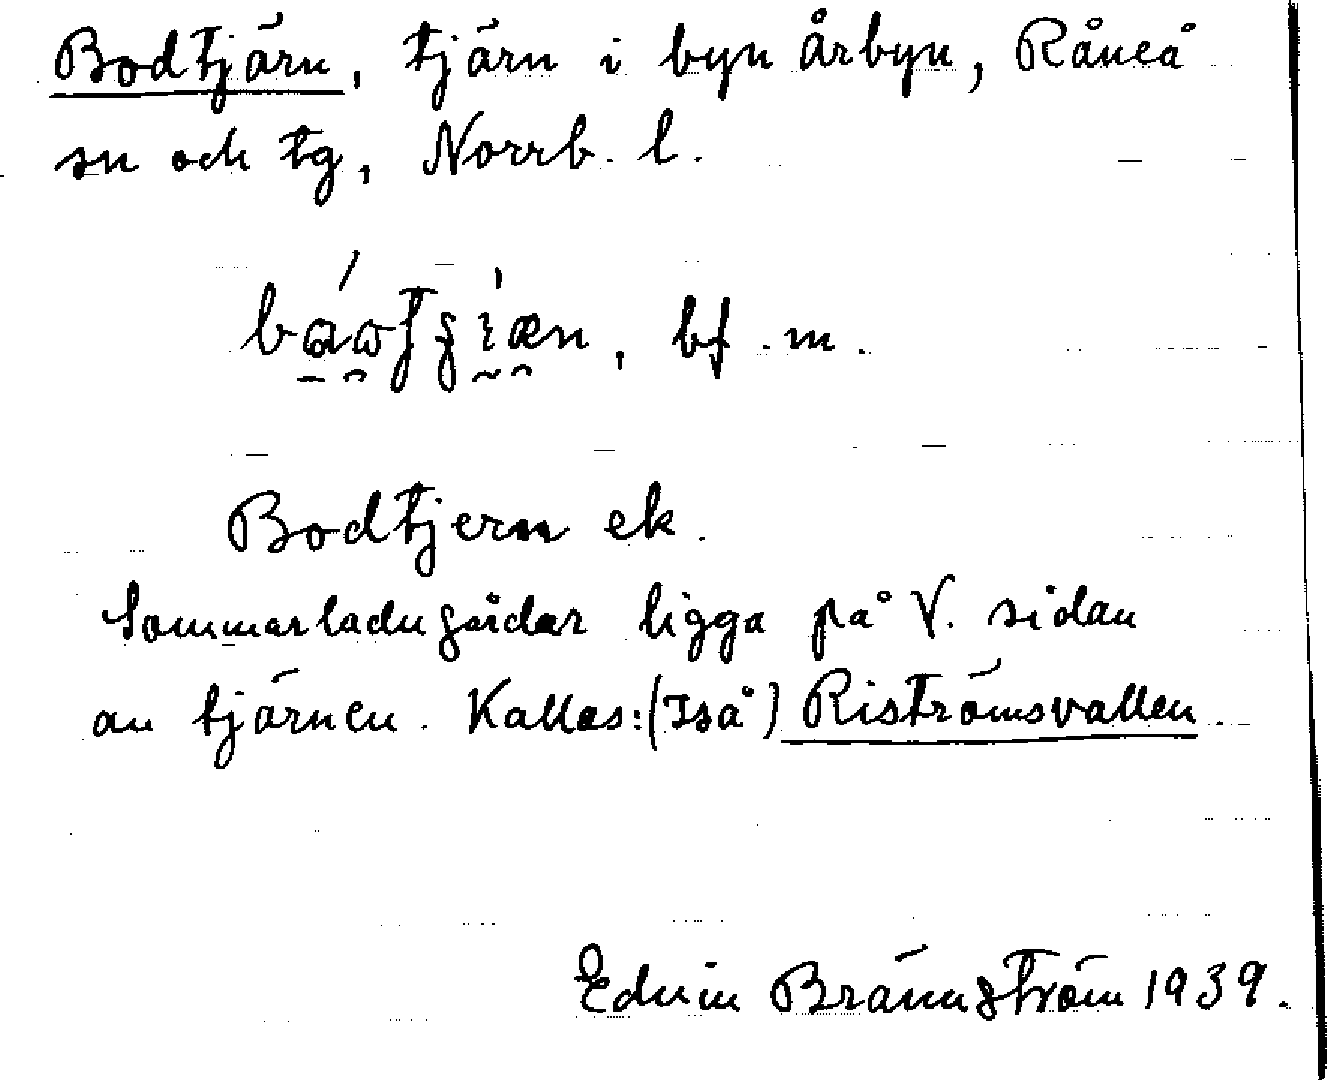 Bodtjärn, tjärn i byn Årbyn, Råneå
sn och tg, Norrb. l.
bf. m.
Bodtjern ek.
Sommarladugårdar ligga på V. sidan
av tjärnen. Kallas: (Iså) Riströmsvallen.
Edvin Brännström 1939.